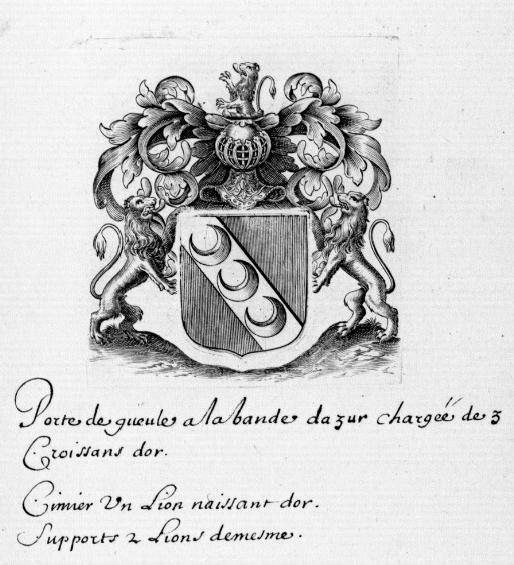 Porte de gueule a la bande dazur chargéé de 3
Croissans dor.
Cimier Vn Lion naissant dor.
Supports 2 Lions demesme.